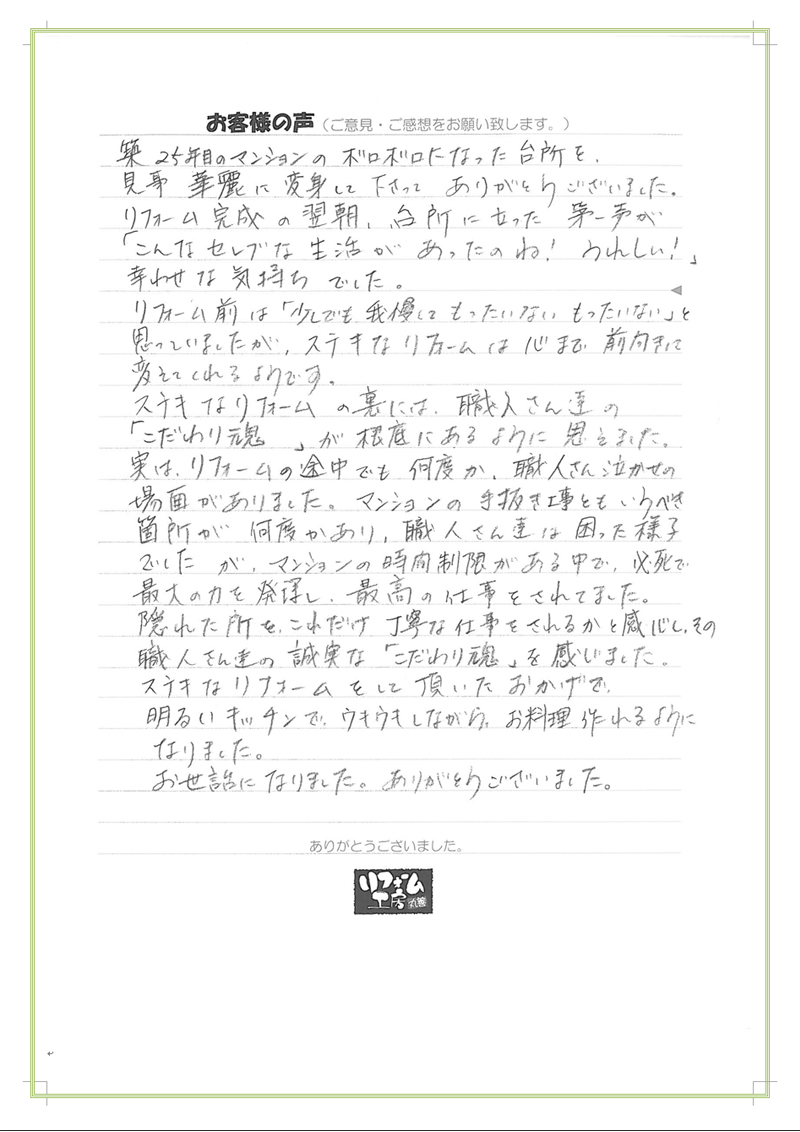 お客様の声（ご意見・ご感想をお願い致します。）
築25年目のマンションのボロボロになった台所を、
見事華麗に変身して下さってありがとうございました。
リフォーム完成の翌朝、台所に立った第一声が
「こんなセレブな生活があったのね！うれしい！」
幸わせな気持ちでした。
リフォーム前は「少しでも我慢してもったいないもったいない」と
思っていましたが、ステキなリフォームは心まで前向きに
変えてくれるようです。
ステキなリフォームの裏には、職人さん達の
「こだわり魂」が根底にあるように思えました。
実は、リフォームの途中でも何度か、職人さん泣かせの
場面がありました。マンションの手抜き工事ともいうべき
箇所が何度かあり、職人さん達は困った様子
でしたが、マンションの時間制限がある中で、必死で
最大の力を発揮し、最高の仕事をされてました。
隠れた所を、これだけ丁寧な仕事をされるかと感心し、その
職人さん達の誠実な「こだわり魂」を感じました。
ステキなリフォームをして頂いたおかげで、
明るいキッチンで、ウキウキしながら、お料理作れるように
なりました。
お世話になりました。ありがとうございました。
ありがとうございました。
リフォーム
工房